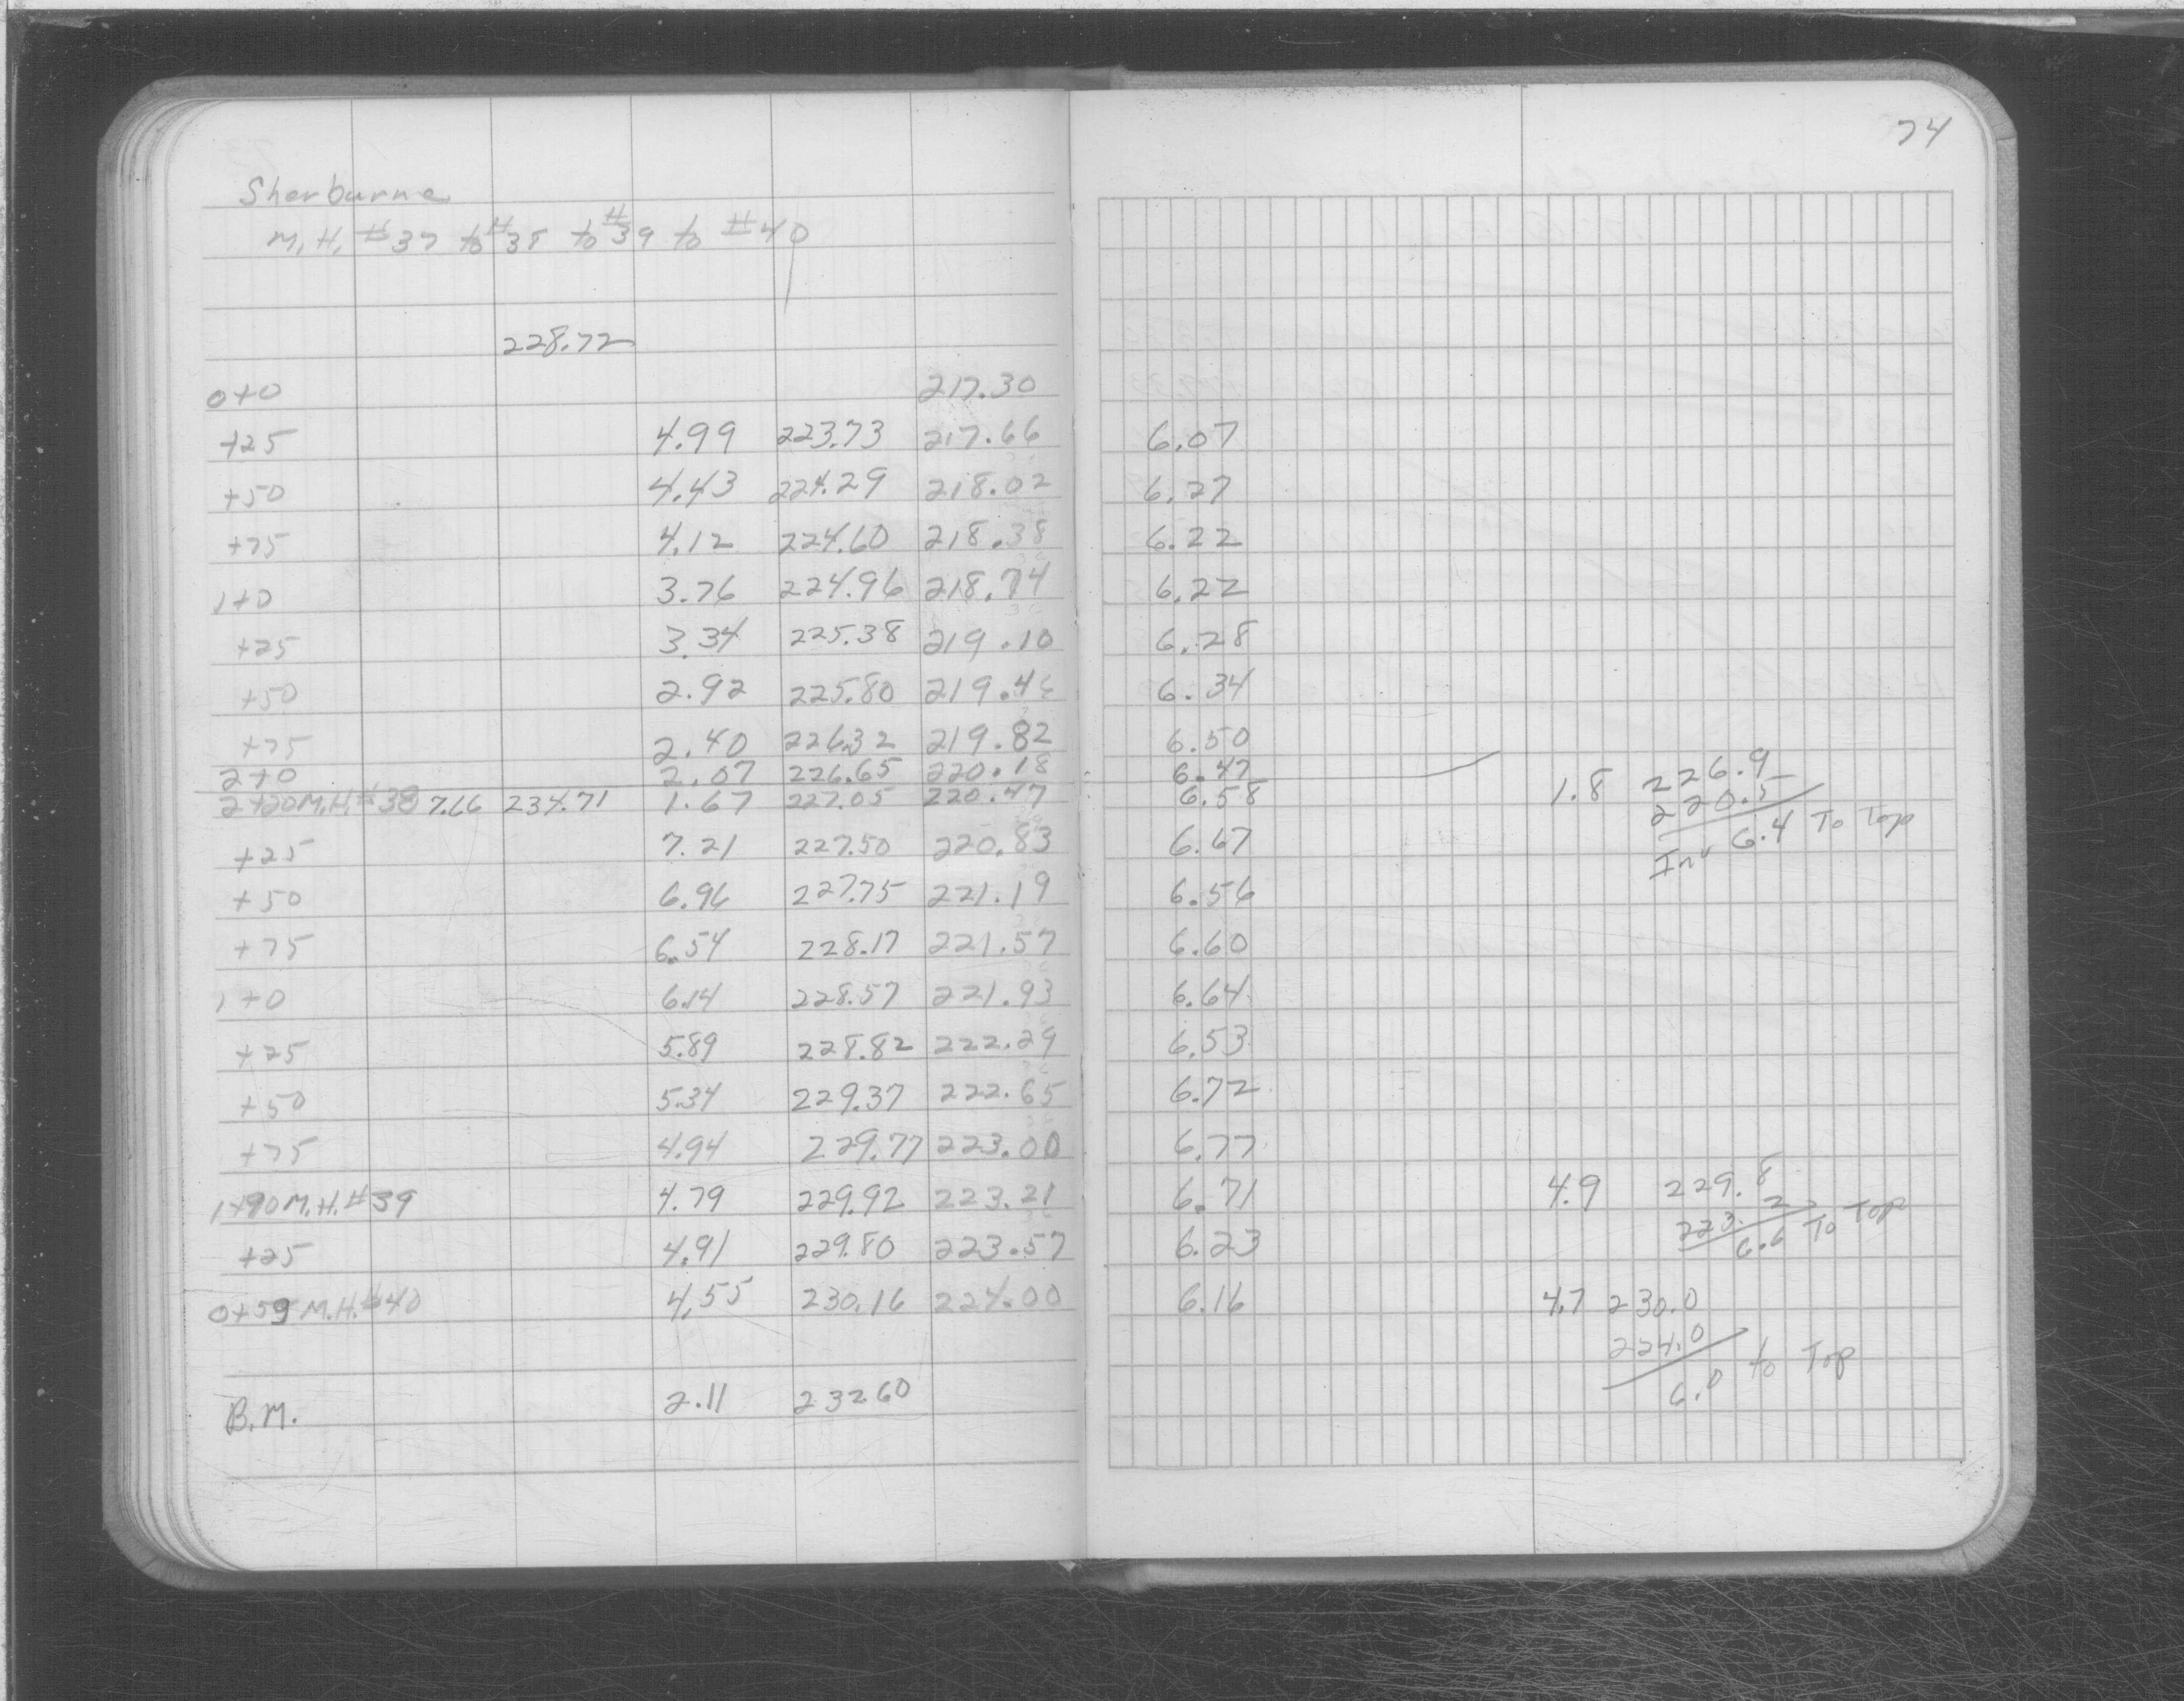 74
Sherburne
M.H. #37 to #38 to #39 to #40
228.72
0+0 217.30
+25 4.99 223.73 217.66 6.07
+50 4.43 224.29 218.02 6.27
+75 4.12 224.60 218.38 6.22
1+0 3.76 224.96 218.74 6.22
+25 3.34 225.38 219.10 6.28
+50 2.92 225.80 219.46 6.34
+75 2.40 226.32 219.82 6.50
2+0 2.07 226.65 220.18 6.47
2+20 M.H. #38 7.66 234.71 1.67 227.05 220.47 6.58 1.8 226.9
220.5
+25 7.21 227.50 220.83 6.67 Inv 6.4 To Top
+50 6.96 227.75 221.19 6.56
+75 6.54 228.17 221.57 6.60
1+0 6.14 228.57 221.93 6.64
+25 5.89 228.82 222.29 6.53
+50 5.34 229.37 222.65 6.72
+75 4.94 229.77 223.00 6.77
1+90 M.H. #39 4.79 229.92 223.21 6.71 4.9 229.8
223.2
+25 4.91 229.80 223.57 6.23 6.6 To Top
0+59 M.H. #40 4.55 230.16 224.00 6.16 4.7 230.0
224.0
6.0 to Top
B.M. 2.11 232.60